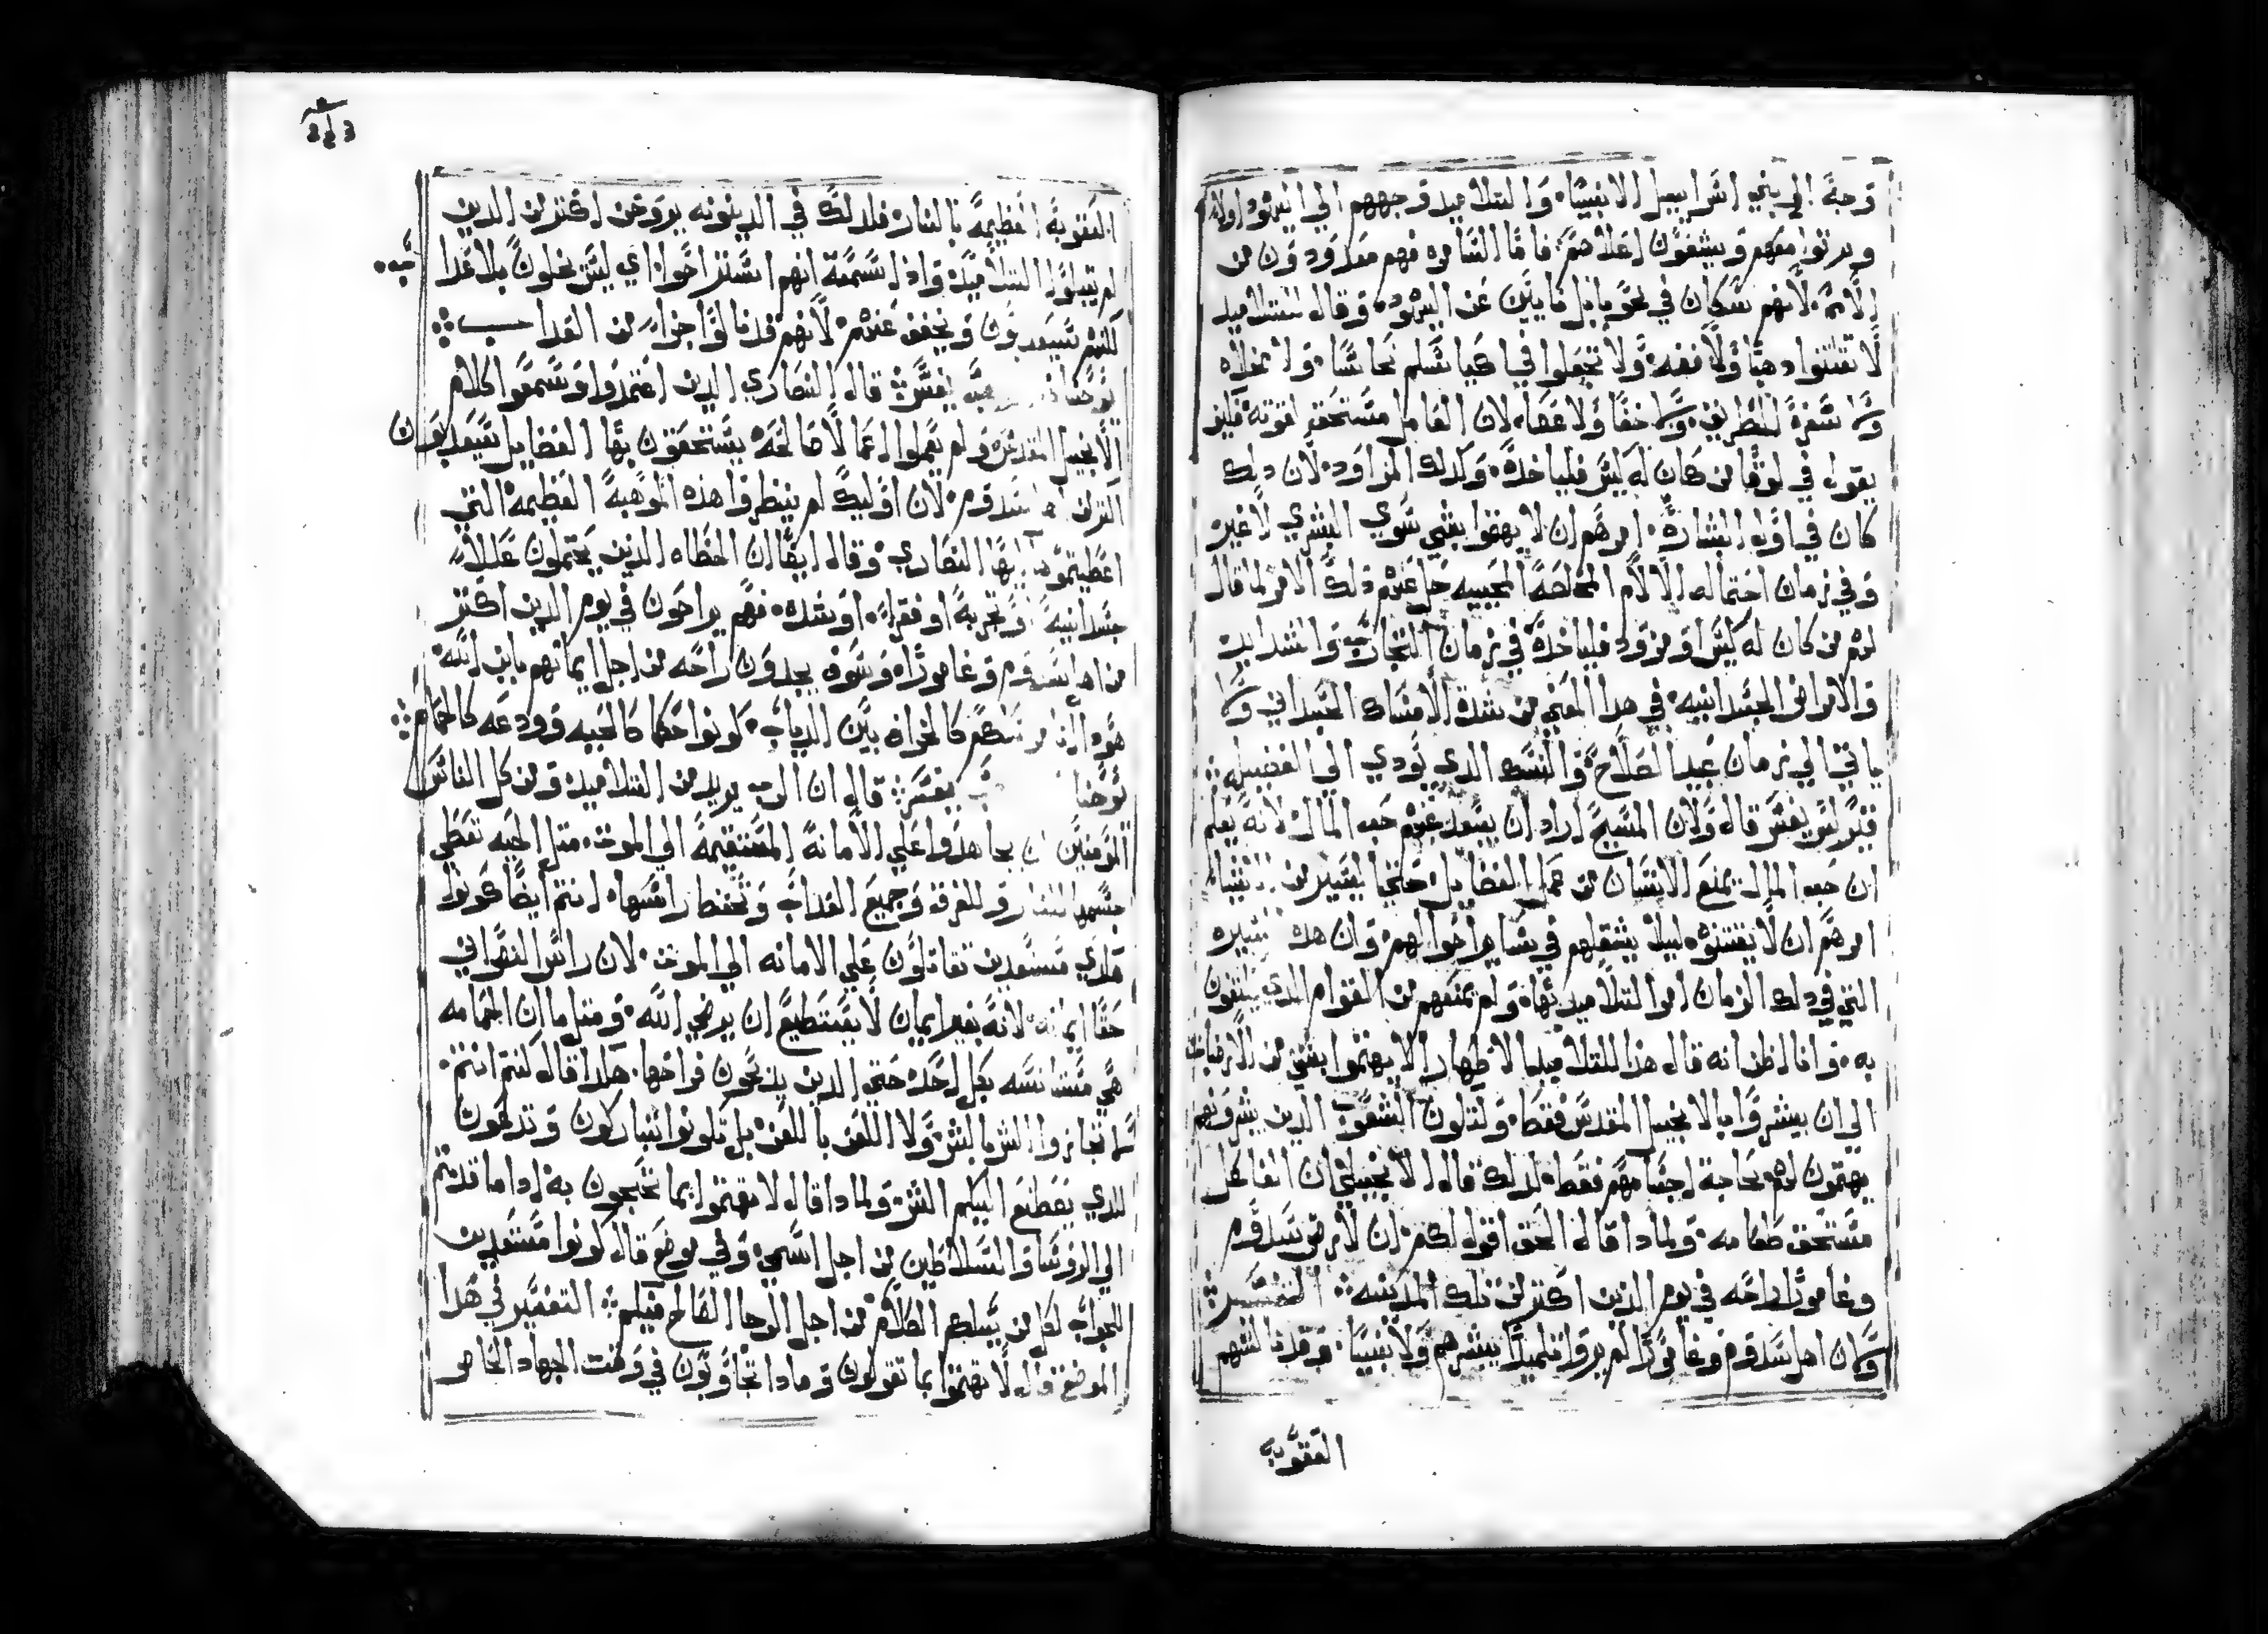 وجهة الي بني اسراييل الانبيا، والتلاميد وجههم الي اليهود اولا
ويرتوا معهم ويشفون اعلاهم فاما السامره فهم معدودون من
الامم لانهم سكان في نحو بابل نايين عن اليهود وقال للتلاميد
لا تقتنوا دهبا ولا فضه ولا تجعلوا في اكياسكم نحاسا ولا مخلاه
ولا سفرة للطريق ولا خفا ولا عصا لان الفاعل مستحق قوته فليف
يقول في لوقا من كان له كيس فلياخده وكدلك المزاود لان دلك
كان في اول البشارة امرهم ان لا يهتموا بشي سوي البشري لا غير
وفي زمان احتماله الالام المخلصة المحييه حل عنهم دلك الامر لما قال
لهم من كان له كيس او مزود فلياخده في زمان التجارب والشدايد
والامراض الجسدانيه في هدا المعني من شدة الامساك الجسداني ولا
ياتي الي زمان عيد الصلاح والنسك الدي يودي الي الفضيله
قيرلس يفسر قال ولان المسيح اراد ان يبعد عنهم حب المال لانه يعلم
ان حب المال يمنع الانسان من عمل الفضايل حتي ليتير من الاغنيا
امرهم ان لا يقتنوه ليلا يشغلهم في ساير احوالهم وان هده السيره
التي في دلك الزمان امر التلاميد بها ولم يمنعهم من القوام الدي يتقون
به وانا اظن انه قال هدا للتلاميد الاطهار الا يهتموا بشي من الارضيات
الي ان يبشروا بالانجيل المقدس فقط ولتكون الشعوب الدين يبشرونهم
يهتمون لهم بحاجة اجسامهم فقط لدلك قال الانجيلي ان الفاعل
مستحق طعامه ولمادا قال الحق اقول لكم ان لارض سدوم
وغامورا راحه في يوم الدين اكتر من تلك المدينه التفسير
ولان اهل سدوم وغامورا لم يروا تلميدا يبشرهم ولا نبيا وقد نالتهم
العقوبة
العقوبة العظيمة بالنار فلدلك في الدينونه يروحن اكتر من الدين
لم يقبلوا التلاميد وادا سمعت انهم استراحوا اي ليس يخلون بلا عدا
ب
لكنهم سيعدبون ويخفف عنهم لانهم قد نالوا جزا من العداب
يوحنا يفسر قال النصاري الدين اعتمدوا وسمعوا كلام
الانجيل المقدس ولم يعملوا اعمالا صالحة يستحقون بها الفضايل سيعدبون
اكتر من اهل سدوم لان اوليك لم ينظروا هده الموهبة العظيمة التي
اعطيتموها ايها النصاري وقال ايضا ان الخطاه الدين يحتملون علل
جسدانية او تجربة او فقرا او شده فهم يراحون في يوم الدين اكتر
من اهل سدوم وغامورا وسوف يجدون راحه من اجل ايمانهم بابن الله
هودا انا مرسلكم كالخراف بين الدياب كونوا حكما كالحيه وودعه كالحمام
يوحنا يفسر قال ان الرب يريد من التلاميد ومن كل الناس
المومنين ان يجاهدوا علي الامانة المستقيمة الي الموت متل الحيه تعطي
جسمها للنار وللغرق وجميع العداب وتحفط راسها انتم ايضا كونوا
هكدي مستعدين تقاتلون علي الامانه الي الموت لان راس النصراني
حقا ايمانه لانه بغير ايمان لا يستطيع ان يرضي الله ومتل ما ان الحمامه
هي مستانسه بكل احد حتي الدين يدبحون فراخها هكدا قال لكم انتم
لا تجازوا الشر بالشر ولا اللعن باللعن بل تكونوا تباركون وتدعون
للدي يقطع اليكم الشر ولمادا قال لا تهتموا بما تحتجون به ادا ما قدمتم
الي الروسا والسلاطين من اجل اسمي وفي موضع قال كونوا مستعدين
للجواب لكل من يسلكم الكلام من اجل الرجا الصالح فيكم التفسير في هدا
الموضع قال لا تهتموا بما تقولون ومادا تجاوبون في وقت الجهاد الخاص